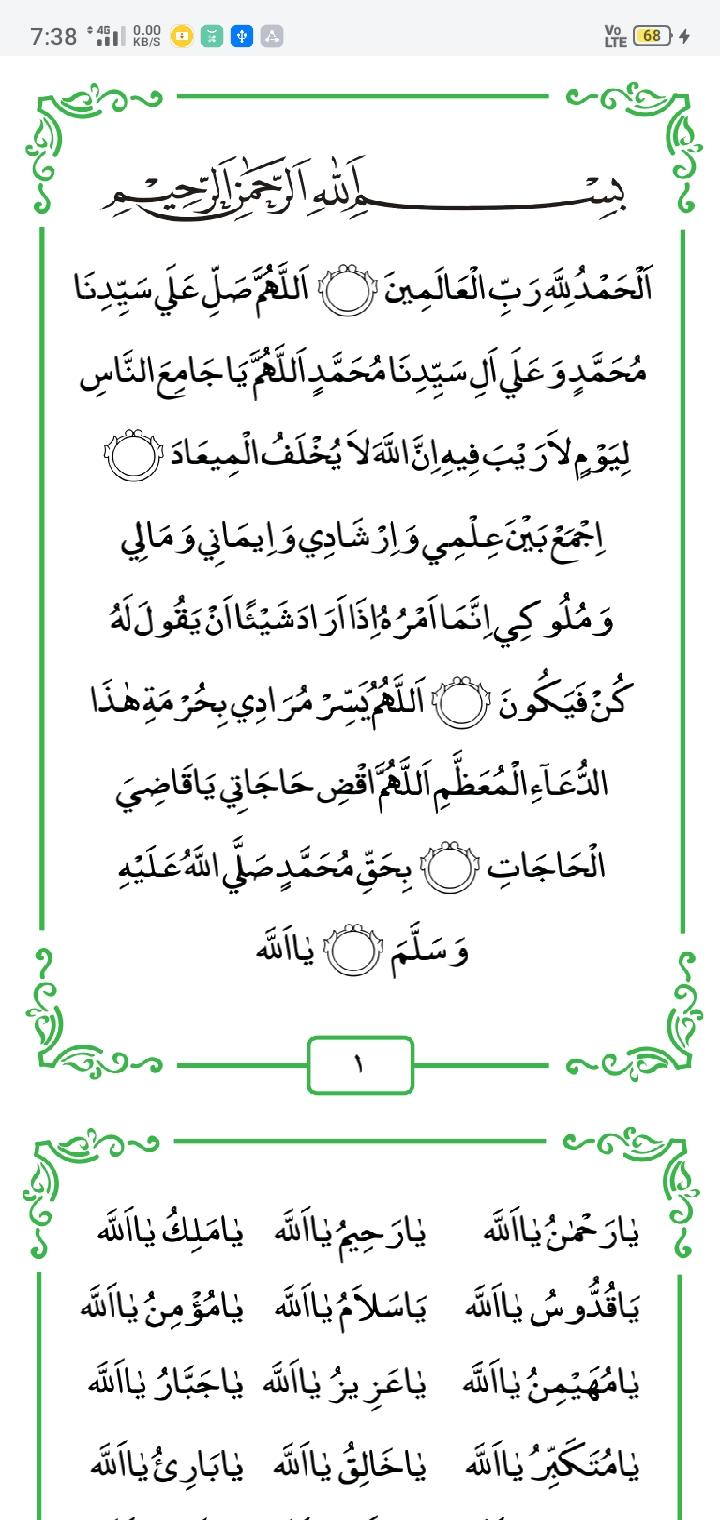 7:38 4G 0.00 KB/S Vo LTE 68
بِسْمِ اللهِ الرَّحْمٰنِ الرَّحِيْمِ
اَلْحَمْدُ لِلَّهِ رَبِّ الْعَالَمِينَ اَللَّهُمَّ صَلِّ عَلَي سَيِّدِنَا
مُحَمَّدٍ وَ عَلَي اَلِ سَيِّدِنَا مُحَمَّدٍ اَللَّهُمَّ يَا جَامِعَ النَّاسِ
لِيَوْمٍ لاَ رَيْبَ فِيهِ اِنَّ اللَّهَ لاَ يُخْلَفُ الْمِيعَادَ
اِجْمَعْ بَيْنَ عِلْمِي وَ اِرْشَادِي وَ اِيمَانِي وَ مَالِي
وَ مُلُوكِي اِنَّمَا اَمْرُهُ اِذَا اَرَادَ شَيْئًا اَنْ يَقُولَ لَهُ
كُنْ فَيَكُونَ اَللَّهُمَّ يَسِّرْ مُرَادِي بِحُرْمَةِ هٰذَا
الدُّعَآءِ الْمُعَظَّمِ اَللَّهُمَّ اقْضِ حَاجَاتِي يَا قَاضِيَ
الْحَاجَاتِ بِحَقِّ مُحَمَّدٍ صَلَّي اللَّهُ عَلَيْهِ
وَ سَلَّمَ يٰا اَللَّه
١
يٰا رَحْمٰنُ يٰا اَللَّه يٰا رَحِيمُ يٰا اَللَّه يٰا مَلِكُ يٰا اَللَّه
يَا قُدُّوسُ يٰا اَللَّه يَا سَلاَمُ يٰا اَللَّه يٰا مُؤْمِنُ يٰا اَللَّه
يٰا مُهَيْمِنُ يٰا اَللَّه يٰا عَزِيزُ يٰا اَللَّه يٰا جَبَّارُ يٰا اَللَّه
يٰا مُتَكَبِّرُ يٰا اَللَّه يٰا خَالِقُ يٰا اَللَّه يٰا بَارِئُ يٰا اَللَّه